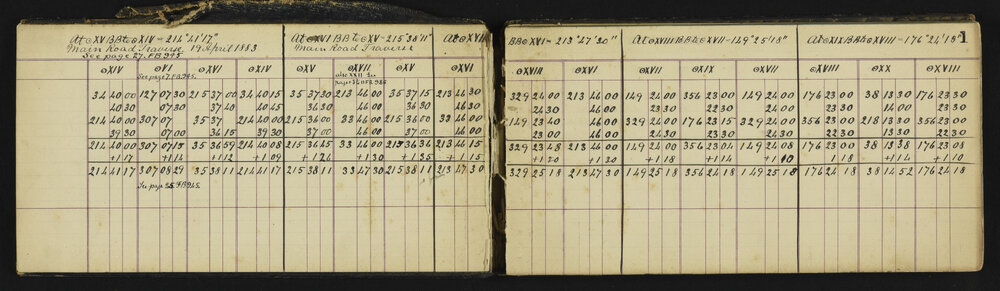 At ⊙XV BB to ⊙XIV - 214°41'17"
Main Road Traverse 19 April 1883
See page 27. FB 945
At ⊙XVI BB to ⊙XV - 215°38'11"
Main Road Traverse
At ⊙XVII
⊙XIV ⊙VI ⊙XVI ⊙XIV ⊙XV ⊙XVII ⊙XV ⊙XVI
See page 27 FB 945.
34 40 00 127 07 30 215 37 00 34 40 15 35 37 30 213 46 00 35 37 15 213 46 30
40 30 07 30 37 40 40 45 36 30 46 00 36 30 46 30
214 40 00 307 07 35 37 214 40 00 215 36 00 33 46 00 215 37 00 33 46 00
39 30 07 00 36 15 39 30 37 00 46 00 36 00 46 00
214 40 00 307 07 15 35 36 59 214 40 08 215 36 45 33 46 00 215 36 36 213 46 15
+1 17 +1 14 +1 12 +1 09 +1 26 +1 30 +1 35 +1 15
214 41 17 307 08 29 35 38 11 214 41 17 215 38 11 33 47 30 215 38 11 213 47 30
BB ⊙XVI - 213°47'30"
At ⊙XVIII BB to ⊙XVII - 149°25'18"
At ⊙XIX BB to ⊙XVIII - 176°24'18"
1
⊙XVIII ⊙XVI ⊙XVII ⊙XIX ⊙XVII ⊙XVIII ⊙XX ⊙XVIII
329 24 00 213 46 00 149 24 00 356 23 00 149 24 00 176 23 00 38 13 30 176 23 30
24 30 46 00 23 30 22 30 24 00 23 30 14 00 23 30
149 23 40 33 46 00 329 24 00 176 23 15 329 24 00 356 23 00 218 13 30 356 23 00
23 00 46 00 23 30 23 30 24 00 22 30 13 30 22 30
329 23 48 213 46 00 149 24 00 356 23 04 149 24 08 176 23 00 38 13 38 176 23 08
+1 20 +1 18 +1 14 +1 10 1 18 +1 14 +1 10
329 25 18 213 47 30 149 25 18 356 24 18 149 25 18 176 24 18 38 14 52 176 24 18